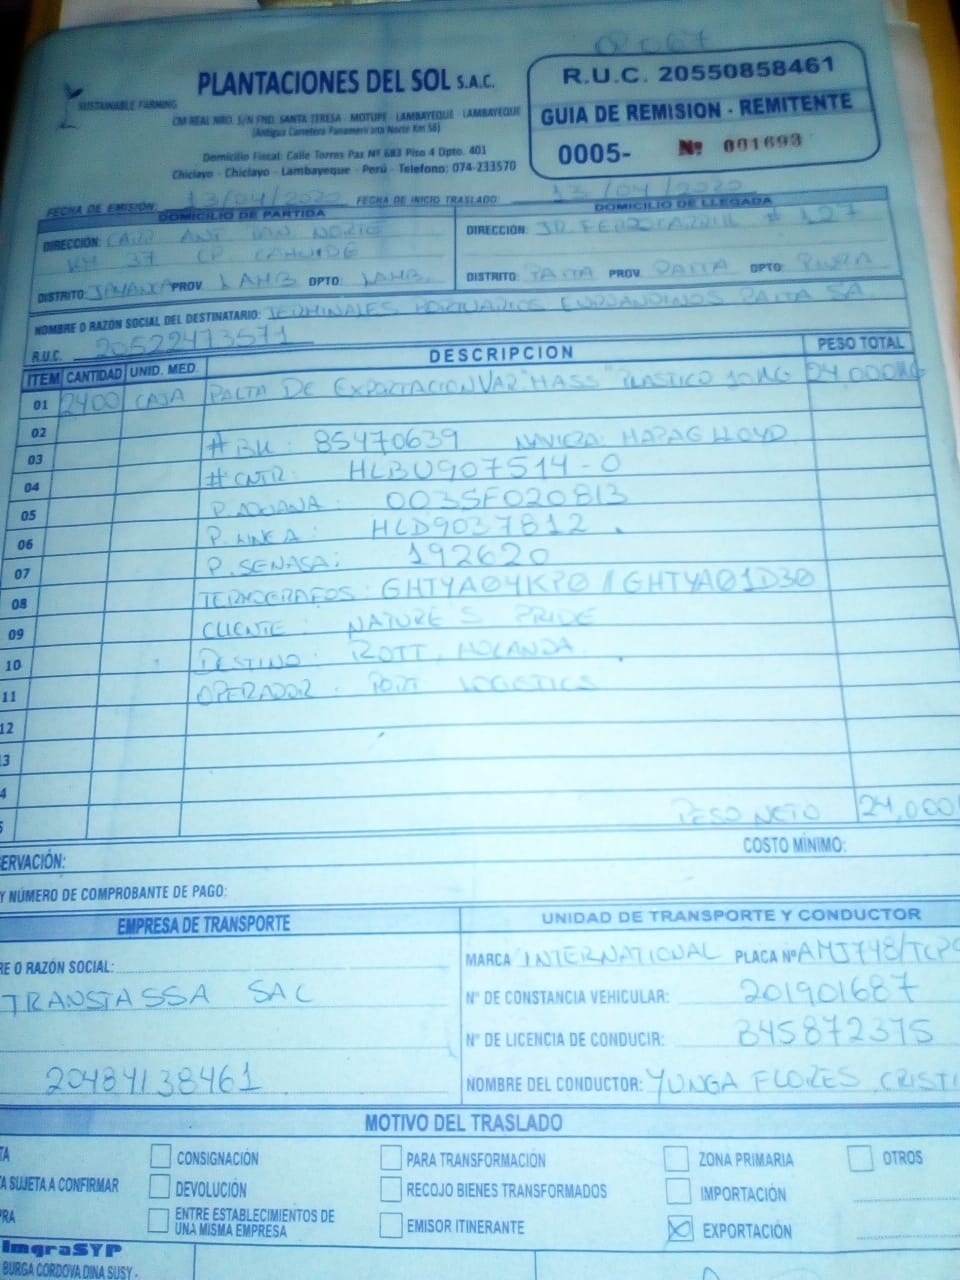 PLANTACIONES DEL SOL S.A.C.
SUSTAINABLE FARMING
CM REAL NRO. S/N FND. SANTA TERESA - MOTUPE - LAMBAYEQUE - LAMBAYEQUE
(Antigua Carretera Panamericana Norte Km 56)
Domicilio Fiscal: Calle Torres Paz Nº 683 Piso 4 Dpto. 401
Chiclayo - Chiclayo - Lambayeque - Perú - Telefono: 074-233570
R.U.C. 20550858461
GUIA DE REMISION - REMITENTE
0005- Nº 001693
FECHA DE EMISIÓN: 13/04/2020 FECHA DE INICIO TRASLADO 13/04/2020
DOMICILIO DE PARTIDA
DIRECCIÓN: CARR ANT PAN NORTE
KM 37 CP CAHUIDE
DISTRITO: JAYANCA PROV LAMB DPTO: LAMB.
DOMICILIO DE LLEGADA
DIRECCIÓN: JR FERROCARRIL # 127
DISTRITO: PAITA PROV. PAITA DPTO: PIURA
NOMBRE O RAZÓN SOCIAL DEL DESTINATARIO: TERMINALES PORTUARIOS EUROANDINOS PAITA SA
R.U.C. 20522473571
ITEM CANTIDAD UNID. MED. DESCRIPCION PESO TOTAL
01 2400 CAJA PALTA DE EXPORTACION VAR "HASS" PLASTICO 10KG 24,000KG
02
03 # BK: 85470639 NAVIERA: HAPAG LLOYD
04 # CNTR: HLBU907514-0
05 P. ADUANA: 003SF020813
06 P. LINEA: HLD9037812.
07 P. SENASA: 192620
08 TERMOGRAFOS: GHTYA04KP0 / GHTYA01D30
09 CLIENTE: NATURE'S PRIDE
10 DESTINO: ROTT, HOLANDA
11 OPERADOR: PORT LOGISTICS
12
3
4
5 PESO NETO 24,000
ERVACIÓN: COSTO MÍNIMO:
Y NÚMERO DE COMPROBANTE DE PAGO:
EMPRESA DE TRANSPORTE
RE O RAZÓN SOCIAL:
TRANSTASSA SAC
20484138461
UNIDAD DE TRANSPORTE Y CONDUCTOR
MARCA INTERNATIONAL PLACA Nº AMJ748/TCP9
Nº DE CONSTANCIA VEHICULAR: 201901687
Nº DE LICENCIA DE CONDUCIR: B45872375
NOMBRE DEL CONDUCTOR: YUNGA FLORES CRISTI
MOTIVO DEL TRASLADO
TA CONSIGNACIÓN PARA TRANSFORMACIÓN ZONA PRIMARIA OTROS
A SUJETA A CONFIRMAR DEVOLUCIÓN RECOJO BIENES TRANSFORMADOS IMPORTACIÓN
PRA ENTRE ESTABLECIMIENTOS DE UNA MISMA EMPRESA EMISOR ITINERANTE EXPORTACIÓN
ImgraSYP
BURGA CORDOVA DINA SUSY -